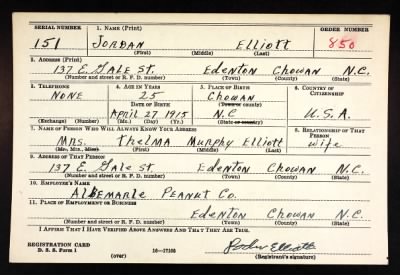 SERIAL NUMBER 1. NAME (Print) ORDER NUMBER
151 JORDAN Elliott 850
(First) (Middle) (Last)
2. ADDRESS (Print)
137 E. GALE ST. EDENTON CHOWAN N.C.
(Number and street or R. F. D. number) (Town) (County) (State)
3. TELEPHONE 4. AGE IN YEARS 5. PLACE OF BIRTH 6. COUNTRY OF CITIZENSHIP
NONE 25 CHOWAN
DATE OF BIRTH (Town or county)
APRIL 27 1915 N.C U.S.A.
(Exchange) (Number) (Mo.) (Day) (Yr.) (State or country)
7. NAME OF PERSON WHO WILL ALWAYS KNOW YOUR ADDRESS 8. RELATIONSHIP OF THAT PERSON
MRS. Thelma Murphy Elliott wife
(Mr., Mrs., Miss) (First) (Middle) (Last)
9. ADDRESS OF THAT PERSON
137 E. Gale St. EDENTON CHOWAN N.C.
(Number and street or R. F. D. number) (Town) (County) (State)
10. EMPLOYER'S NAME
ALBEMARLE PEANUT CO.
11. PLACE OF EMPLOYMENT OR BUSINESS
EDENTON CHOWAN N.C.
(Number and street or R. F. D. number) (Town) (County) (State)
I AFFIRM THAT I HAVE VERIFIED ABOVE ANSWERS AND THAT THEY ARE TRUE.
REGISTRATION CARD
D. S. S. Form 1 16-17105 Jordan Elliott
(over) (Registrant's signature)